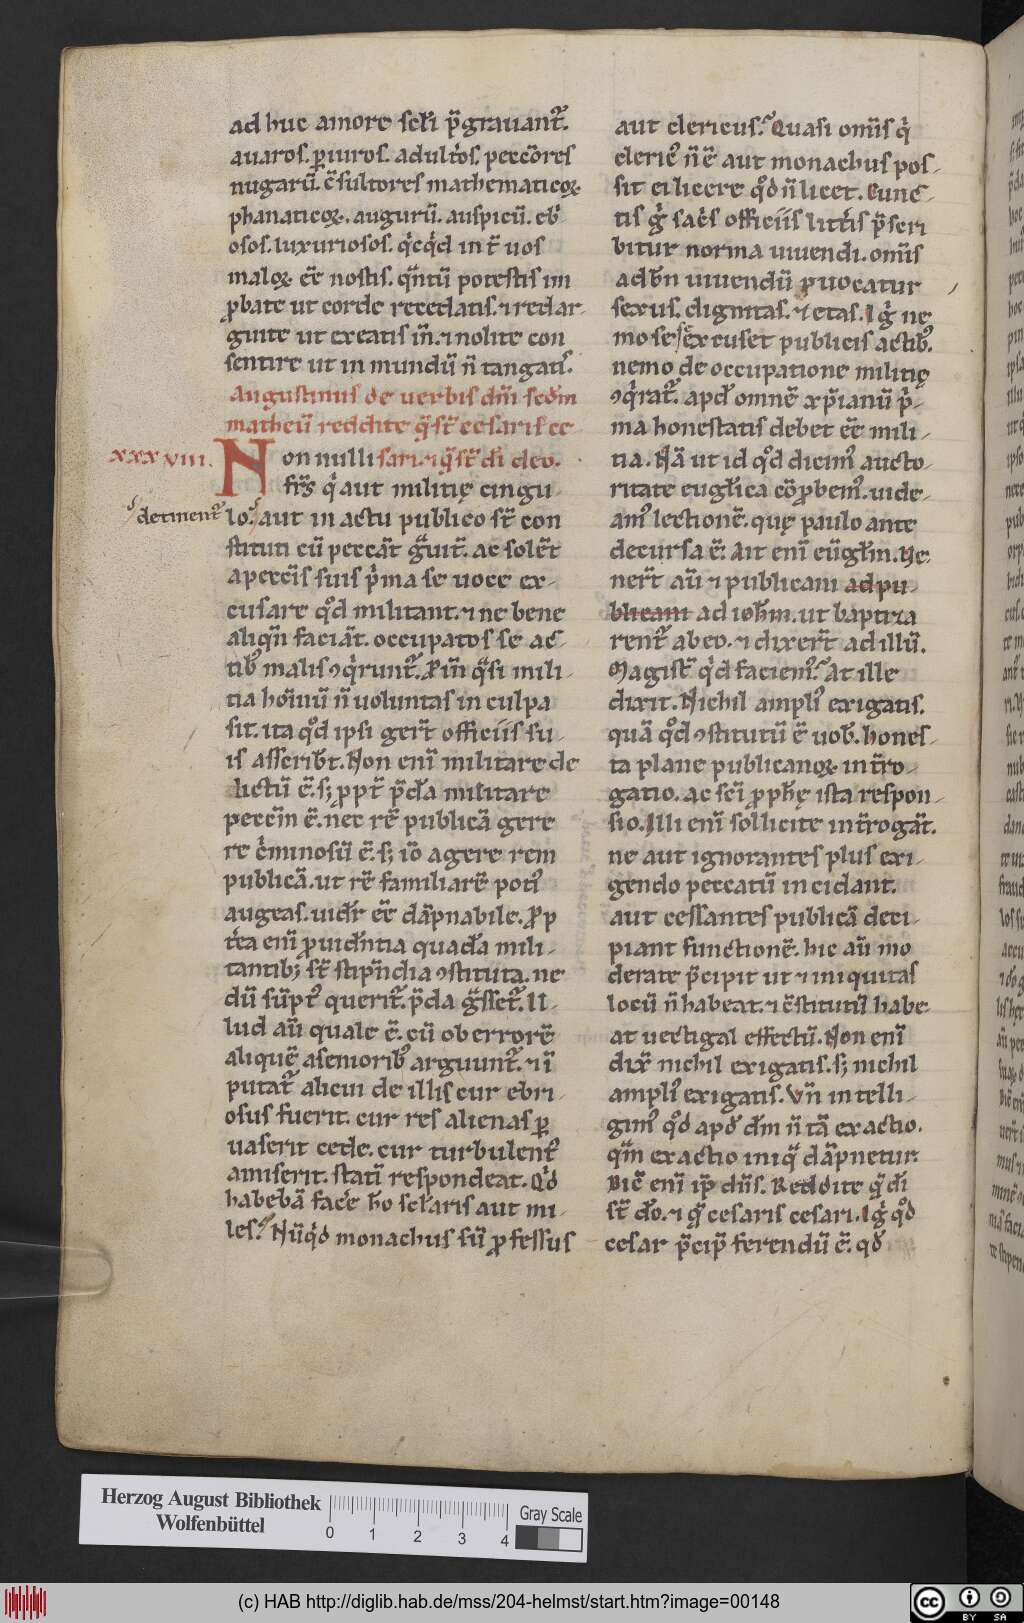 ad huc amore scl̄i p̄grauant᷑.
auaros. ꝑiuros. adult̄os. peccōres
nugarū. c̄sultores mathematicoꝝ
phanaticoꝝ. augurū. auspicū. eb'
osos. luxuriosos. q̇cq̇d int̄ uos
maloꝝ eē nostis. qͣntū potestis im
ꝓbate ut corde recedatis. ⁊ redar-
guite ut exeatis in̄. ⁊ nolite con
sentire ut in mundū n̄ tangatis᷒.
Augustinus de uerbis dn̄i secd̄m
matheū reddite q̄ sт̄ cesaris ce
xxxviii. Non nulli sari. ⁊ q̄ sт̄ di deo.
fr̄s q̇ aut militię cingu-
detinent᷑ lo. aut in actu publico sт̄ con
stituti cū peccāt gͣuit̄. ac solēt
a peccīs suis ṗma se uoce ex-
cusare qͦd militant. ⁊ ne bene
aliqn̄ faciāt. occupatos se ac̄-
tib᷒ malis ꝯq̇runt᷑. P̄in̄ qͣsi mili-
tia hoīnū n̄ uoluntas in culpa
sit. ita qͦd ipsi gerт̄ officiis su-
is asscrib̄t. Non enī militare de
lictū ē. s; ꝓpт̄ p̄da militare
peccīn ē. nec rē publicā gere
re ċminosū ē. s; iō agere rem
publicā. ut rē familiarē poti᷒
augeas. uidr̄ eē dāpnabile. Pꝓp
t̄ea enī ꝓuidn̄tia quadā mili-
tantib; sт̄ stipn̄dia ꝯstituta. ne
dū sūpt᷒ querit᷑. p̄da gͣsset᷑. Il-
lud aū quale ē. cū ob errorē
aliquē a seniorib᷒ arguunt᷑. ⁊ ī
putat᷑ alicui de illis cur ebri-
osus fuerit. cur res alienas ꝑ
uaserit cede. cur turbulent᷒
amiserit. statī respondeat. Qͥd
habebā face h̄o scl̄aris aut mi-
les? Nūq̇d monachus sū ꝓfessus
aut clericus? Quasi om̄is q̇
cleric᷒ n̄ ē aut monachus pos-
sit ei licere qͦd n̄ licet. Cunc̄-
tis g̊ sac̄s officiis litt̄is p̄scri
bitur norma uiuendi. om̄is
ad bn̄ uiuendū ꝓuocatur
sexus. dignitas. ⁊ etas. Ig̊ ne
mo se excuset publicis actib᷒.
nemo de occupatione militię
ꝯq̇rat᷑. apd̄ omnē xp̄ianū ṗ-
ma honestatis debet eē mili-
tia. Nā ut id qͦd dicim᷒ aucto-
ritate euglīca cōꝓbem᷒. uide-
am᷒ lectionē. quę paulo ante
decursa ē. Ait enī eūglm̄. Ue-
nerт̄ aū ⁊ publicani ad pu-
blicani ad ioh̄m. ut baptiza
rent᷑ ab eo. ⁊ dixerт̄ ad illū.
Magisт̄ q̇d faciem᷒? At ille
dixit. Nichil ampli᷒ exigatis.
quā qͦd ꝯstitutū ē uob̄. hones-
ta plane publicanoꝝ int̄ro-
gatio. ac scī ꝓph̄ę ista respon-
sio. Illi enī sollicite int̄rogāt.
ne aut ignorantes plus exi-
gendo peccatū incidant.
aut cessantes publicā deci-
piant functionē. hic aū mo
derate p̄cipit ut ⁊ iniquitas
locū n̄ habeat. ⁊ c̄stitutū habe-
at uectigal effectū. Non enī
dix̄ nichil exigatis. s; nichil
ampli᷒ exigatis. Vn̄ intelli-
gim᷒ qͦd apd̄ dm̄ n̄ tā exactio.
qͣm exactio iniqͣ dāpnetur.
Dic̄ enī ip̄ dn̄s. Reddite q̄ di
sт̄ do. ⁊ q̄ cesaris cesari. Ig̊ qͦd
cesar p̄cip̄ ferendū ē. qd̄
Herzog August Bibliothek
Wolfenbüttel
0 1 2 3 4
Gray Scale
(c) HAB http://diglib.hab.de/mss/204-helmst/start.htm?image=00148
cc BY SA